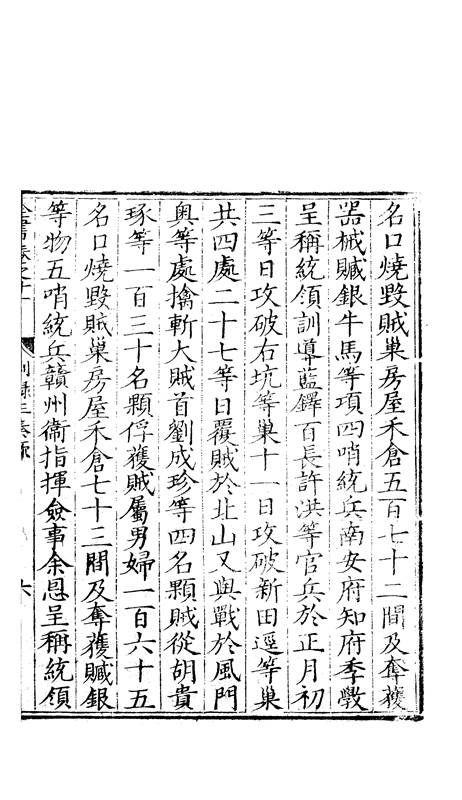 名口燒毀賊巢房屋禾倉五百七十二間及奪獲
器械贓銀牛馬等項四哨統兵南安府知府季斆
呈稱統領訓導藍鐸百長許洪等官兵於正月初
三等日攻破右坑等巢十一日攻破新田逕等巢
共四處二十七等日覆賊於北山又與戰於風門
奧等處擒斬大賊首劉成珍等四名顆賊從胡貴
琢等一百三十名顆俘獲賊屬男婦一百六十五
名口燒毀賊巢房屋禾倉七十三間及奪獲贓銀
等物五哨統兵贛州衞指揮僉事余恩呈稱統領
全書卷之十一
別錄三奏疏
六